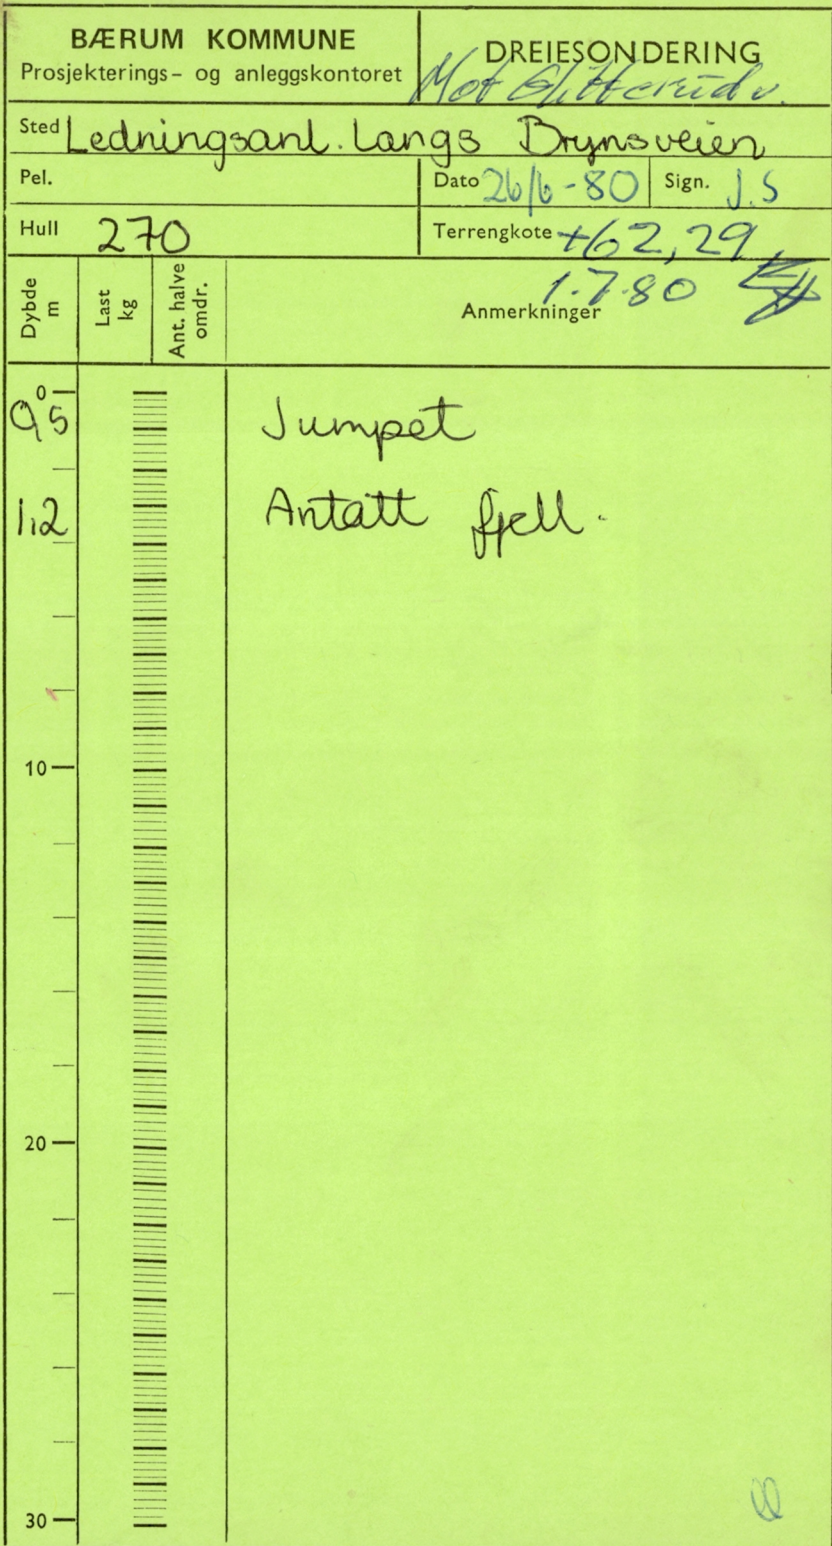 BÆRUM KOMMUNE
Prosjekterings- og anleggskontoret
DREIESONDERING
Mot Glitterudv.
Sted Ledningsanl. langs Brynsveien
Pel.
Dato 26/6-80 Sign. J.S
Hull 270
Terrengkote +62,29
1.7.80
Dybde m
Last kg
Ant. halve omdr.
Anmerkninger
0
0,5 Jumpet
1,2 Antatt fjell.
10
20
30